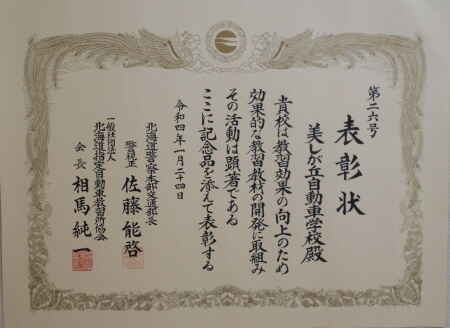 第二六号
表彰状
美しが丘自動車学校殿
貴校は教習効果の向上のため
効果的な教習教材の開発に取組み
その活動は顕著である
ここに記念品を添えて表彰する
令和四年一月二十四日
北海道警察本部交通部長
警視正 佐藤能啓
一般社団法人
北海道指定自動車教習所協会
会長 相馬純一